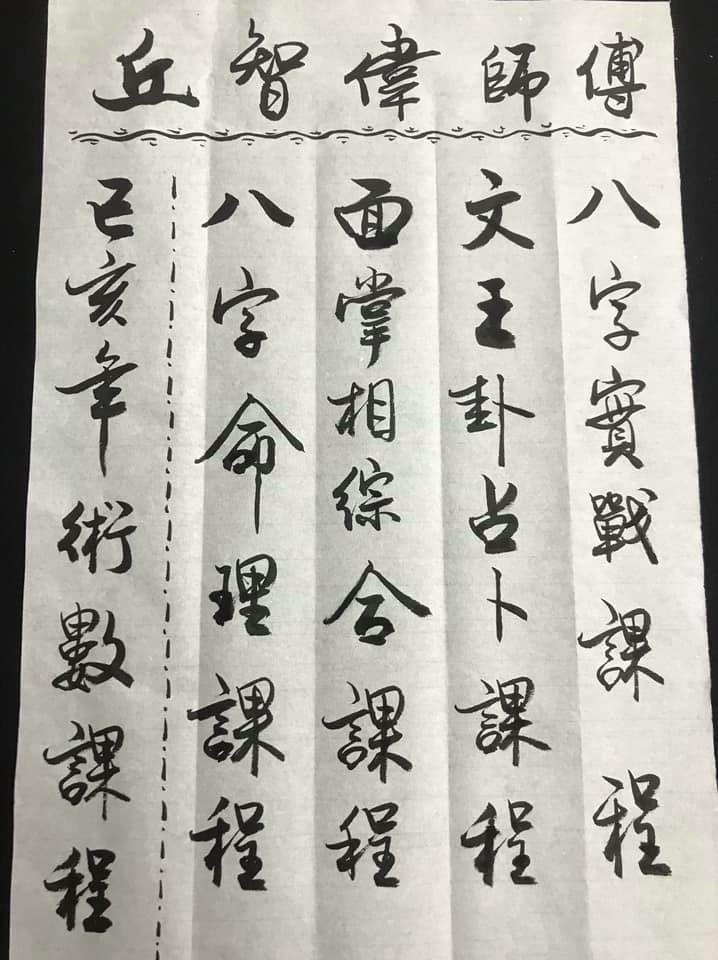 丘智偉師傅
己亥年術數課程
八字命理課程
面掌相綜合課程
文王卦占卜課程
八字實戰課程